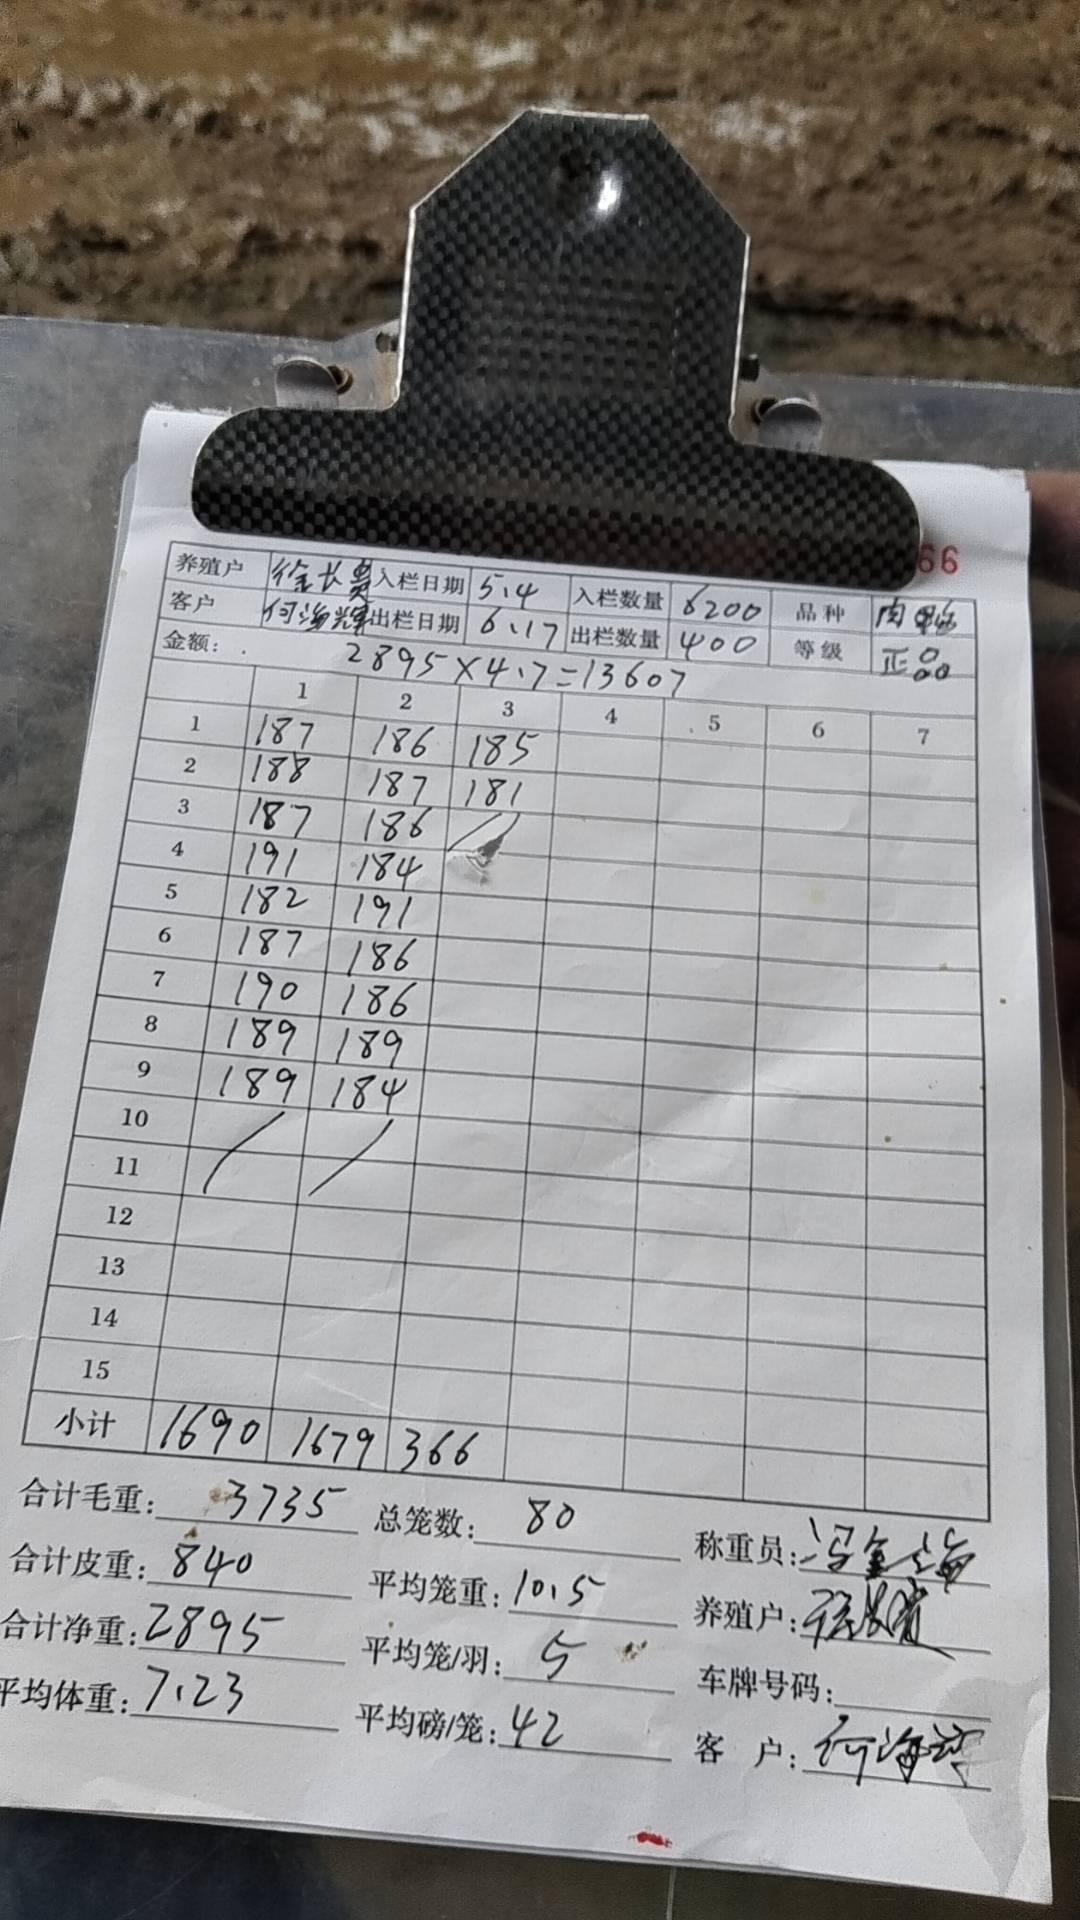 66
养殖户 徐长贵 入栏日期 5.4 入栏数量 6200 品种 肉鸭
客户 何海辉 出栏日期 6.17 出栏数量 400 等级 正品
金额: 2895×4.7=13607
1 2 3 4 5 6 7
1 187 186 185
2 188 187 181
3 187 186
4 191 184
5 182 191
6 187 186
7 190 186
8 189 189
9 189 184
10
11
12
13
14
15
小计 1690 1679 366
合计毛重: 3735 总笼数: 80 称重员:
合计皮重: 840 平均笼重: 10.5 养殖户:
合计净重: 2895 平均笼/羽: 5 车牌号码:
平均体重: 7.23 平均磅/笼: 42 客户: